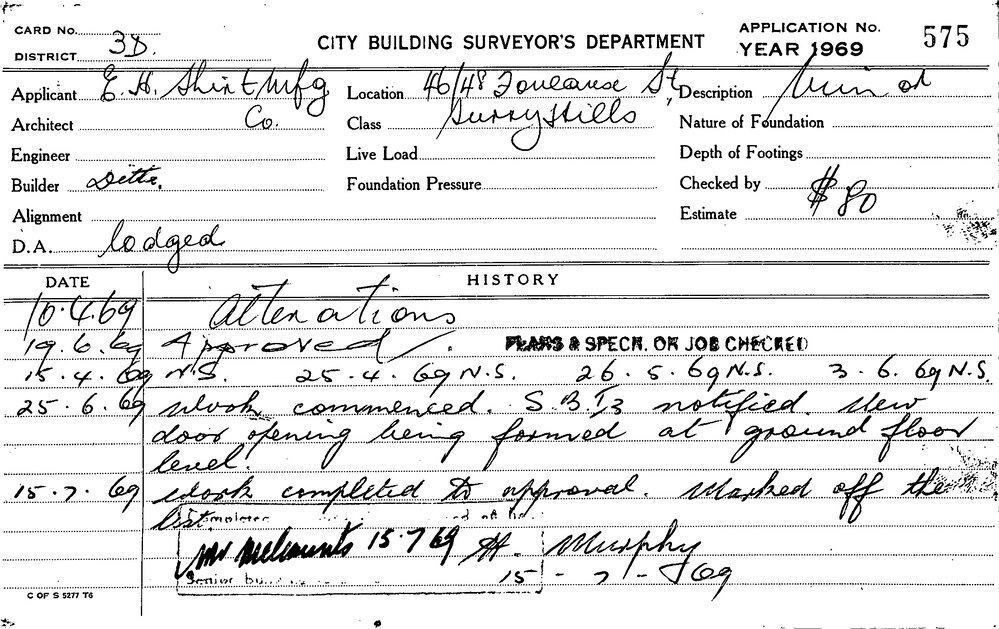 CARD No.
DISTRICT 3D.
CITY BUILDING SURVEYOR'S DEPARTMENT
APPLICATION No. 575
YEAR 1969
Applicant E. H. Shirt Mfg Co.
Location 46/48 Foveaux St, Surry Hills
Description Minor al
Architect
Class
Nature of Foundation
Engineer
Live Load
Depth of Footings
Builder Ditto.
Foundation Pressure
Checked by
Alignment
Estimate $80
D.A. lodged
DATE HISTORY
10.4.69 Alterations
19.6.69 Approved.
PLANS & SPECN. ON JOB CHECKED
15.4.69 N.S. 25.4.69 N.S. 26.5.69 N.S. 3.6.69 N.S.
25.6.69 Work commenced. notified. New
door opening being formed at ground floor
level.
15.7.69 Work completed to approval. Marked off the
list.
15.7.69 H. Murphy
Senior
15-7-69
C OF S 5277 T6